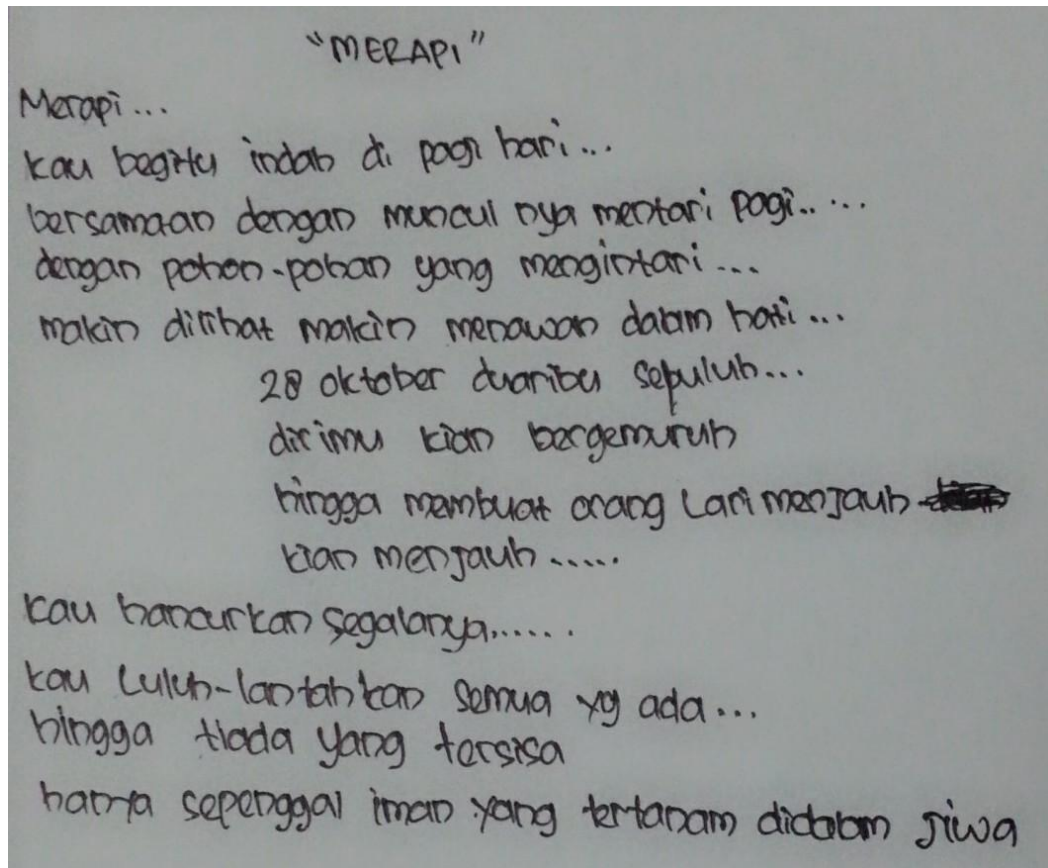 "MERAPI"
Merapi...
kau begitu indah di pagi hari...
bersamaan dengan muncul nya mentari pagi.....
dengan pohon-pohon yang mengintari...
makin dilihat makin menawan dalam hati...
28 oktober duaribu sepuluh...
dirimu kian bergemuruh
hingga membuat orang lari menjauh
kian menjauh.....
kau hancurkan segalanya......
kau luluh-lantahkan semua yg ada...
hingga tiada yang tersisa
hanya sepenggal iman yang tertanam didalam jiwa